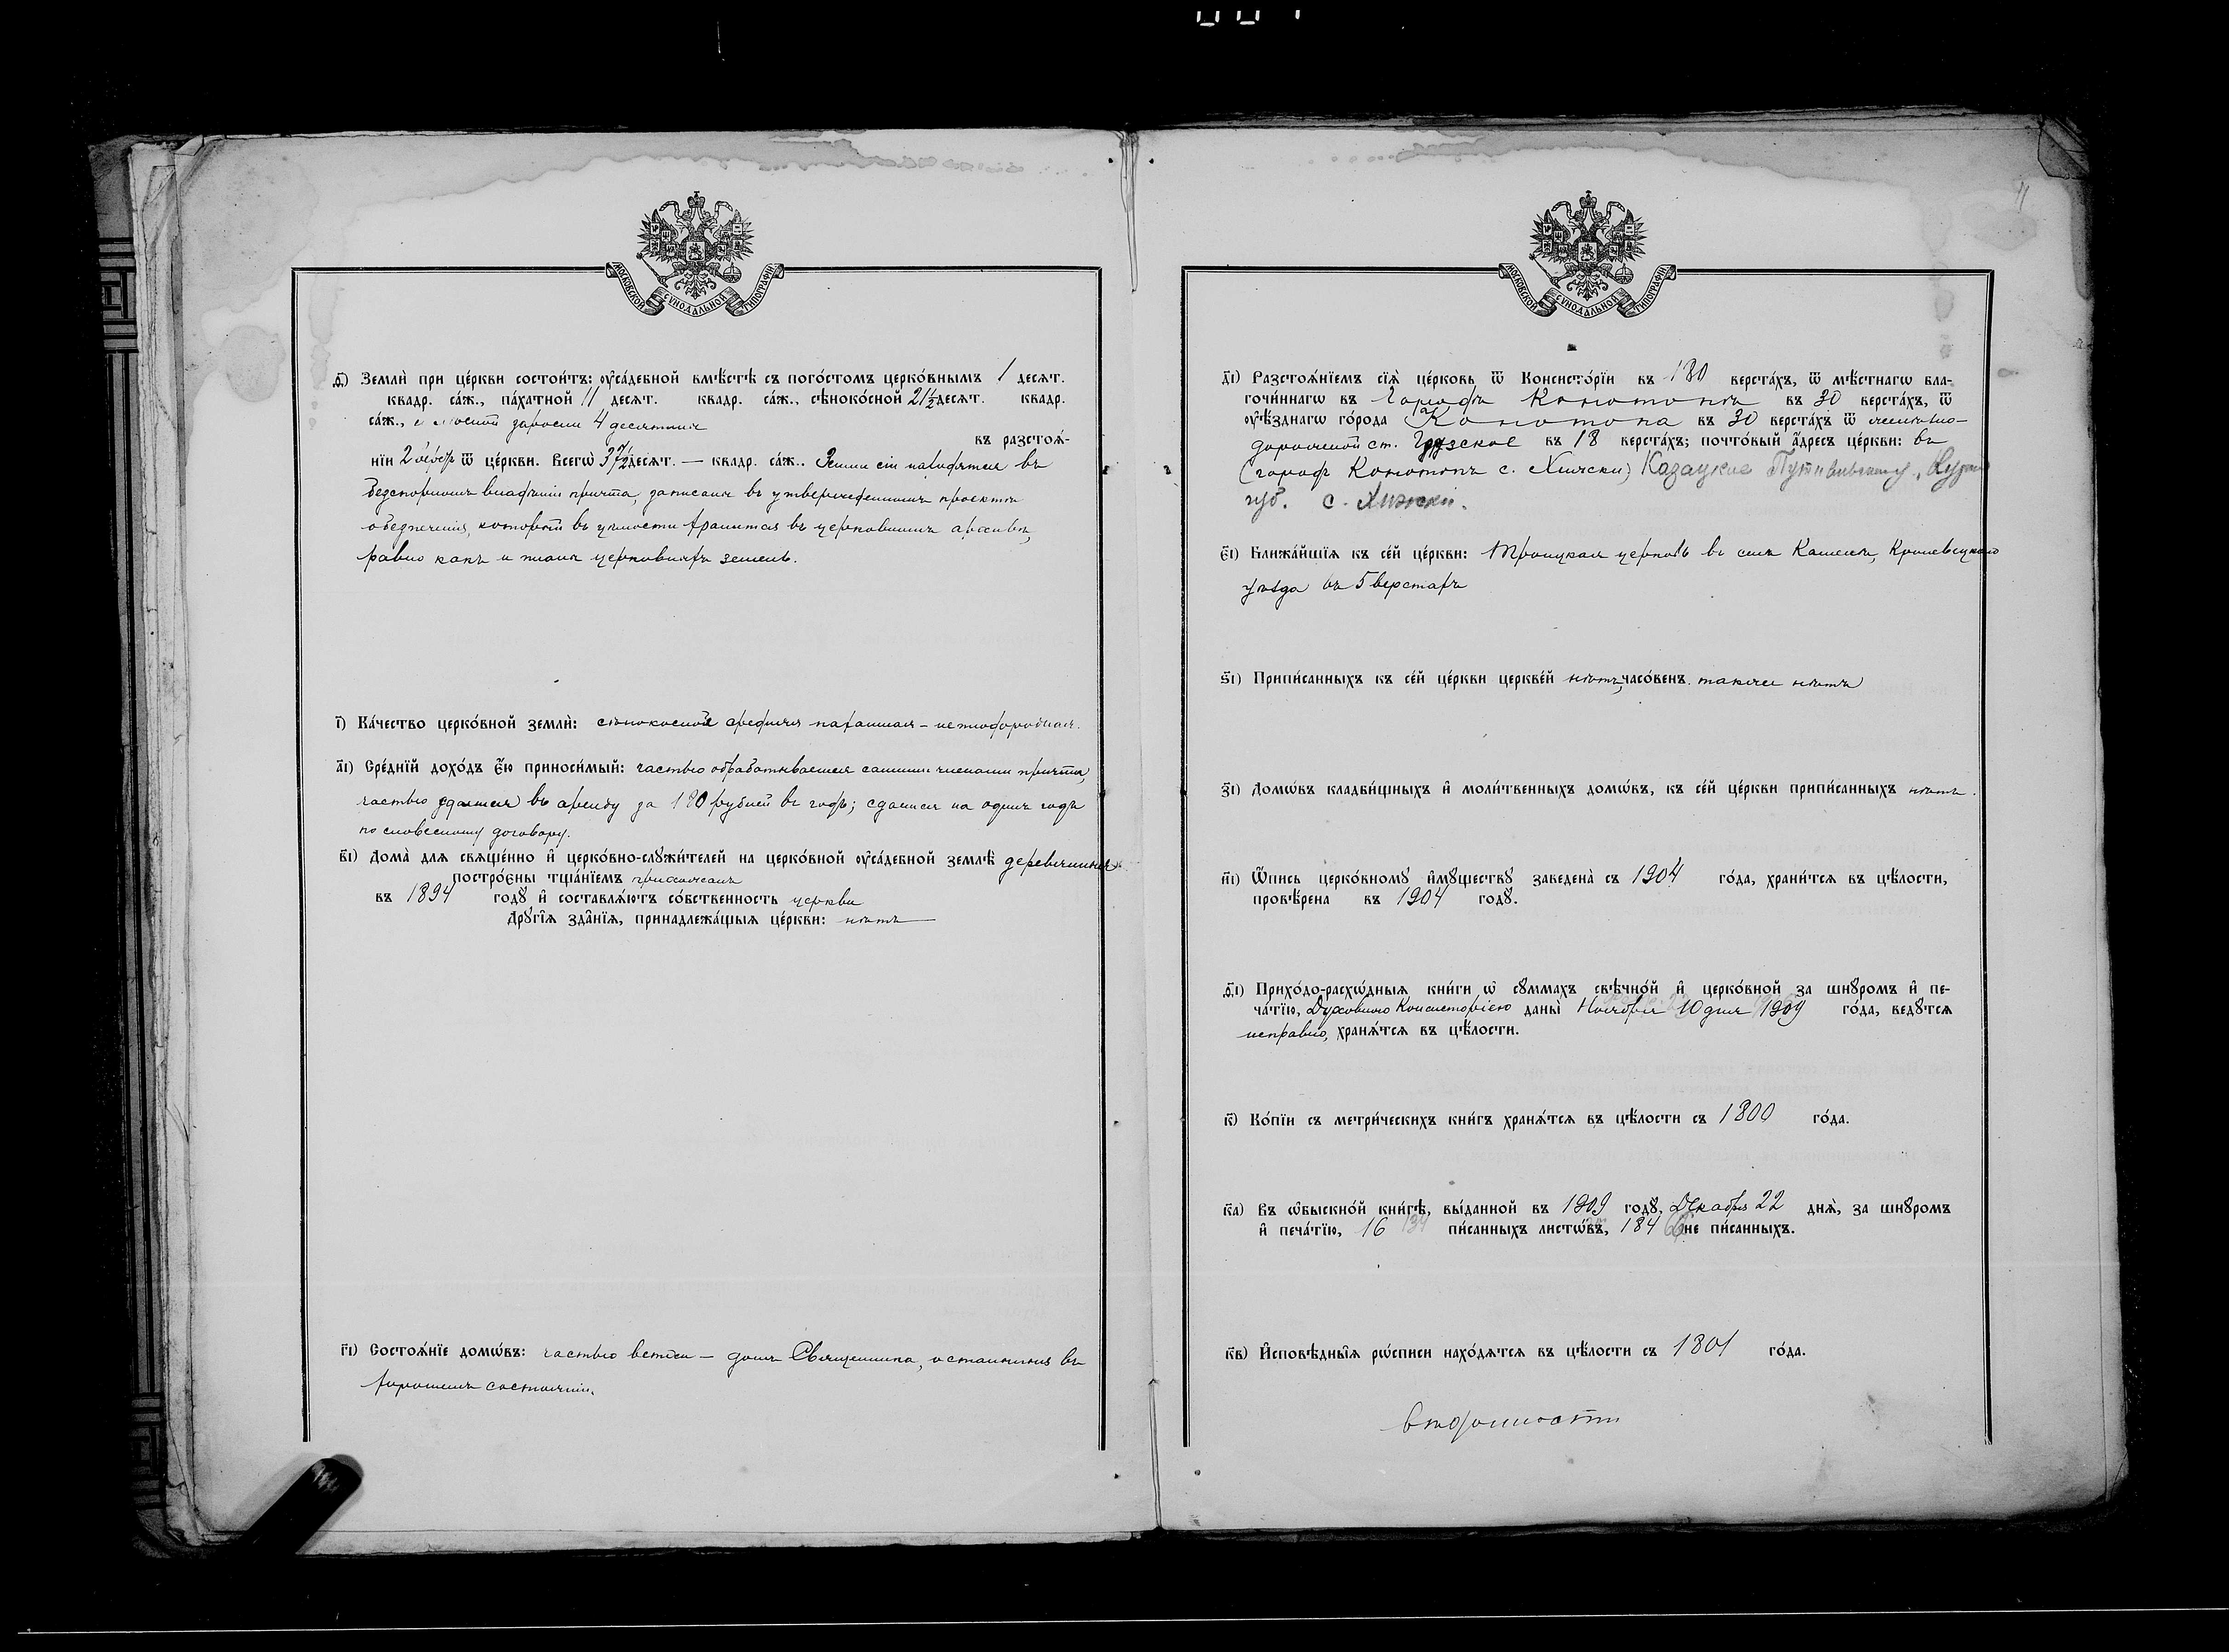 МОСКОВСКОЙ СѴНОДАЛЬНОЙ ТИПОГРАФІИ
ѳ҃) Землѝ при це́ркви состои́тъ: ᲂу҆са́дебной вмѣ́стѣ съ пого́стомъ церко́внымъ 1 десѧт.
квадр. са́ж., па́хатной 11 десѧт. квадр. са́ж., сѣноко́сной 21½ десѧт. квадр.
са́ж., заросли 4 десятины
въ разстоѧ́-
нїи 2 ѿ це́ркви. Всегѡ̀ 37½ десѧт. — квадр. са́ж.. Земли сіи находятся въ
безспорномъ владѣніи причта, записаны въ утвержденномъ проектѣ
обезпеченія, который въ цѣлости хранится въ церковномъ архивѣ,
равно какъ и планъ церковныхъ земель.
і҃) Ка́чество церко́вной землѝ: сѣнокосной средняя пахатная – неплодородная.
а҃і) Сре́днїй дохо́дъ є҆́ю приноси́мый: частью обрабатывается самими членами причта,
частью сдается въ аренду за 180 рублей въ годъ; сдается на одинъ годъ
по словесному договору.
в҃і) Дома̀ для свѧще́нно и҆ церко́вно-слꙋжи́телей на церко́вной ᲂу҆са́дебной землѣ̀ деревянные
постро́єны тща́нїемъ прихожанъ
въ 1894 годꙋ̀ и҆ составлѧ́ютъ со́бственность церкви
Дрꙋгі̑ѧ зда̑нїѧ, принадлежа́щыѧ це́ркви: нѣтъ
г҃і) Состоѧ́нїе домѡ́въ: частью ветхи – домъ Священника, остальныя въ
хорошемъ состояніи.
МОСКОВСКОЙ СѴНОДАЛЬНОЙ ТИПОГРАФІИ
д҃і) Разстоѧ́нїемъ сїѧ̀ це́рковь ѿ Консисто́рїи въ 180 верста́хъ, ѿ мѣ́стнагѡ бла-
гочи́ннагѡ въ Городѣ Конотопѣ въ 30 верста́хъ, ѿ
ᲂу҆ѣ́зднагѡ го́рода Конотопа въ 30 верста́хъ ѿ желѣзно-
дорожной ст. Грузское въ 18 верста́хъ; почто́вый а҆́дресъ це́ркви: въ
(городъ Конотопъ с. Хижки) Казацкие Путивльскому,
губ. с. Хижки.
є҃і) Ближа́йшїѧ къ се́й це́ркви: Троицкая церковь въ селѣ Камени, Кролевецкаго
уѣзда въ 5 верстахъ
ѕ҃і) Припи́санныхъ къ се́й це́ркви церкве́й нѣтъ, часо́венъ также нѣтъ
з҃і) Домѡ́въ кладби́щныхъ и҆ моли́твенныхъ домѡ́въ, къ се́й це́ркви припи́санныхъ нѣтъ.
и҃і) Ѻ҆́пись церко́вномꙋ и҆мꙋ́ществꙋ заведена̀ съ 1904 го́да, храни́тсѧ въ цѣ́лости,
провѣ́рена въ 1904 годꙋ̀.
ѳ҃і) Прихо́до-расхѡ́дныѧ кни́ги ѡ҆ сꙋ́ммахъ свѣчно́й и҆ церко́вной за шнꙋро́мъ и҆ пе-
ча́тїю, Духовною Консисторіею даны̀ Ноября 10 дня 1909 го́да, ведꙋ́тсѧ
исправно, хранѧ́тсѧ въ цѣ́лости.
к҃) Ко́пїи съ метри́ческихъ кни́гъ хранѧ́тсѧ въ цѣ́лости съ 1800 го́да.
к҃а) Въ ѡ҆быскно́й кни́гѣ, вы́данной въ 1909 годꙋ̀, Декабря 22 днѧ̀, за шнꙋро́мъ
и҆ печа́тїю, 16 134 пи́санныхъ листѡ́въ, 184 66 не пи́санныхъ.
к҃в) И҆сповѣ̑дныѧ рѡ́списи нахо́дѧтсѧ въ цѣ́лости съ 1801 го́да.